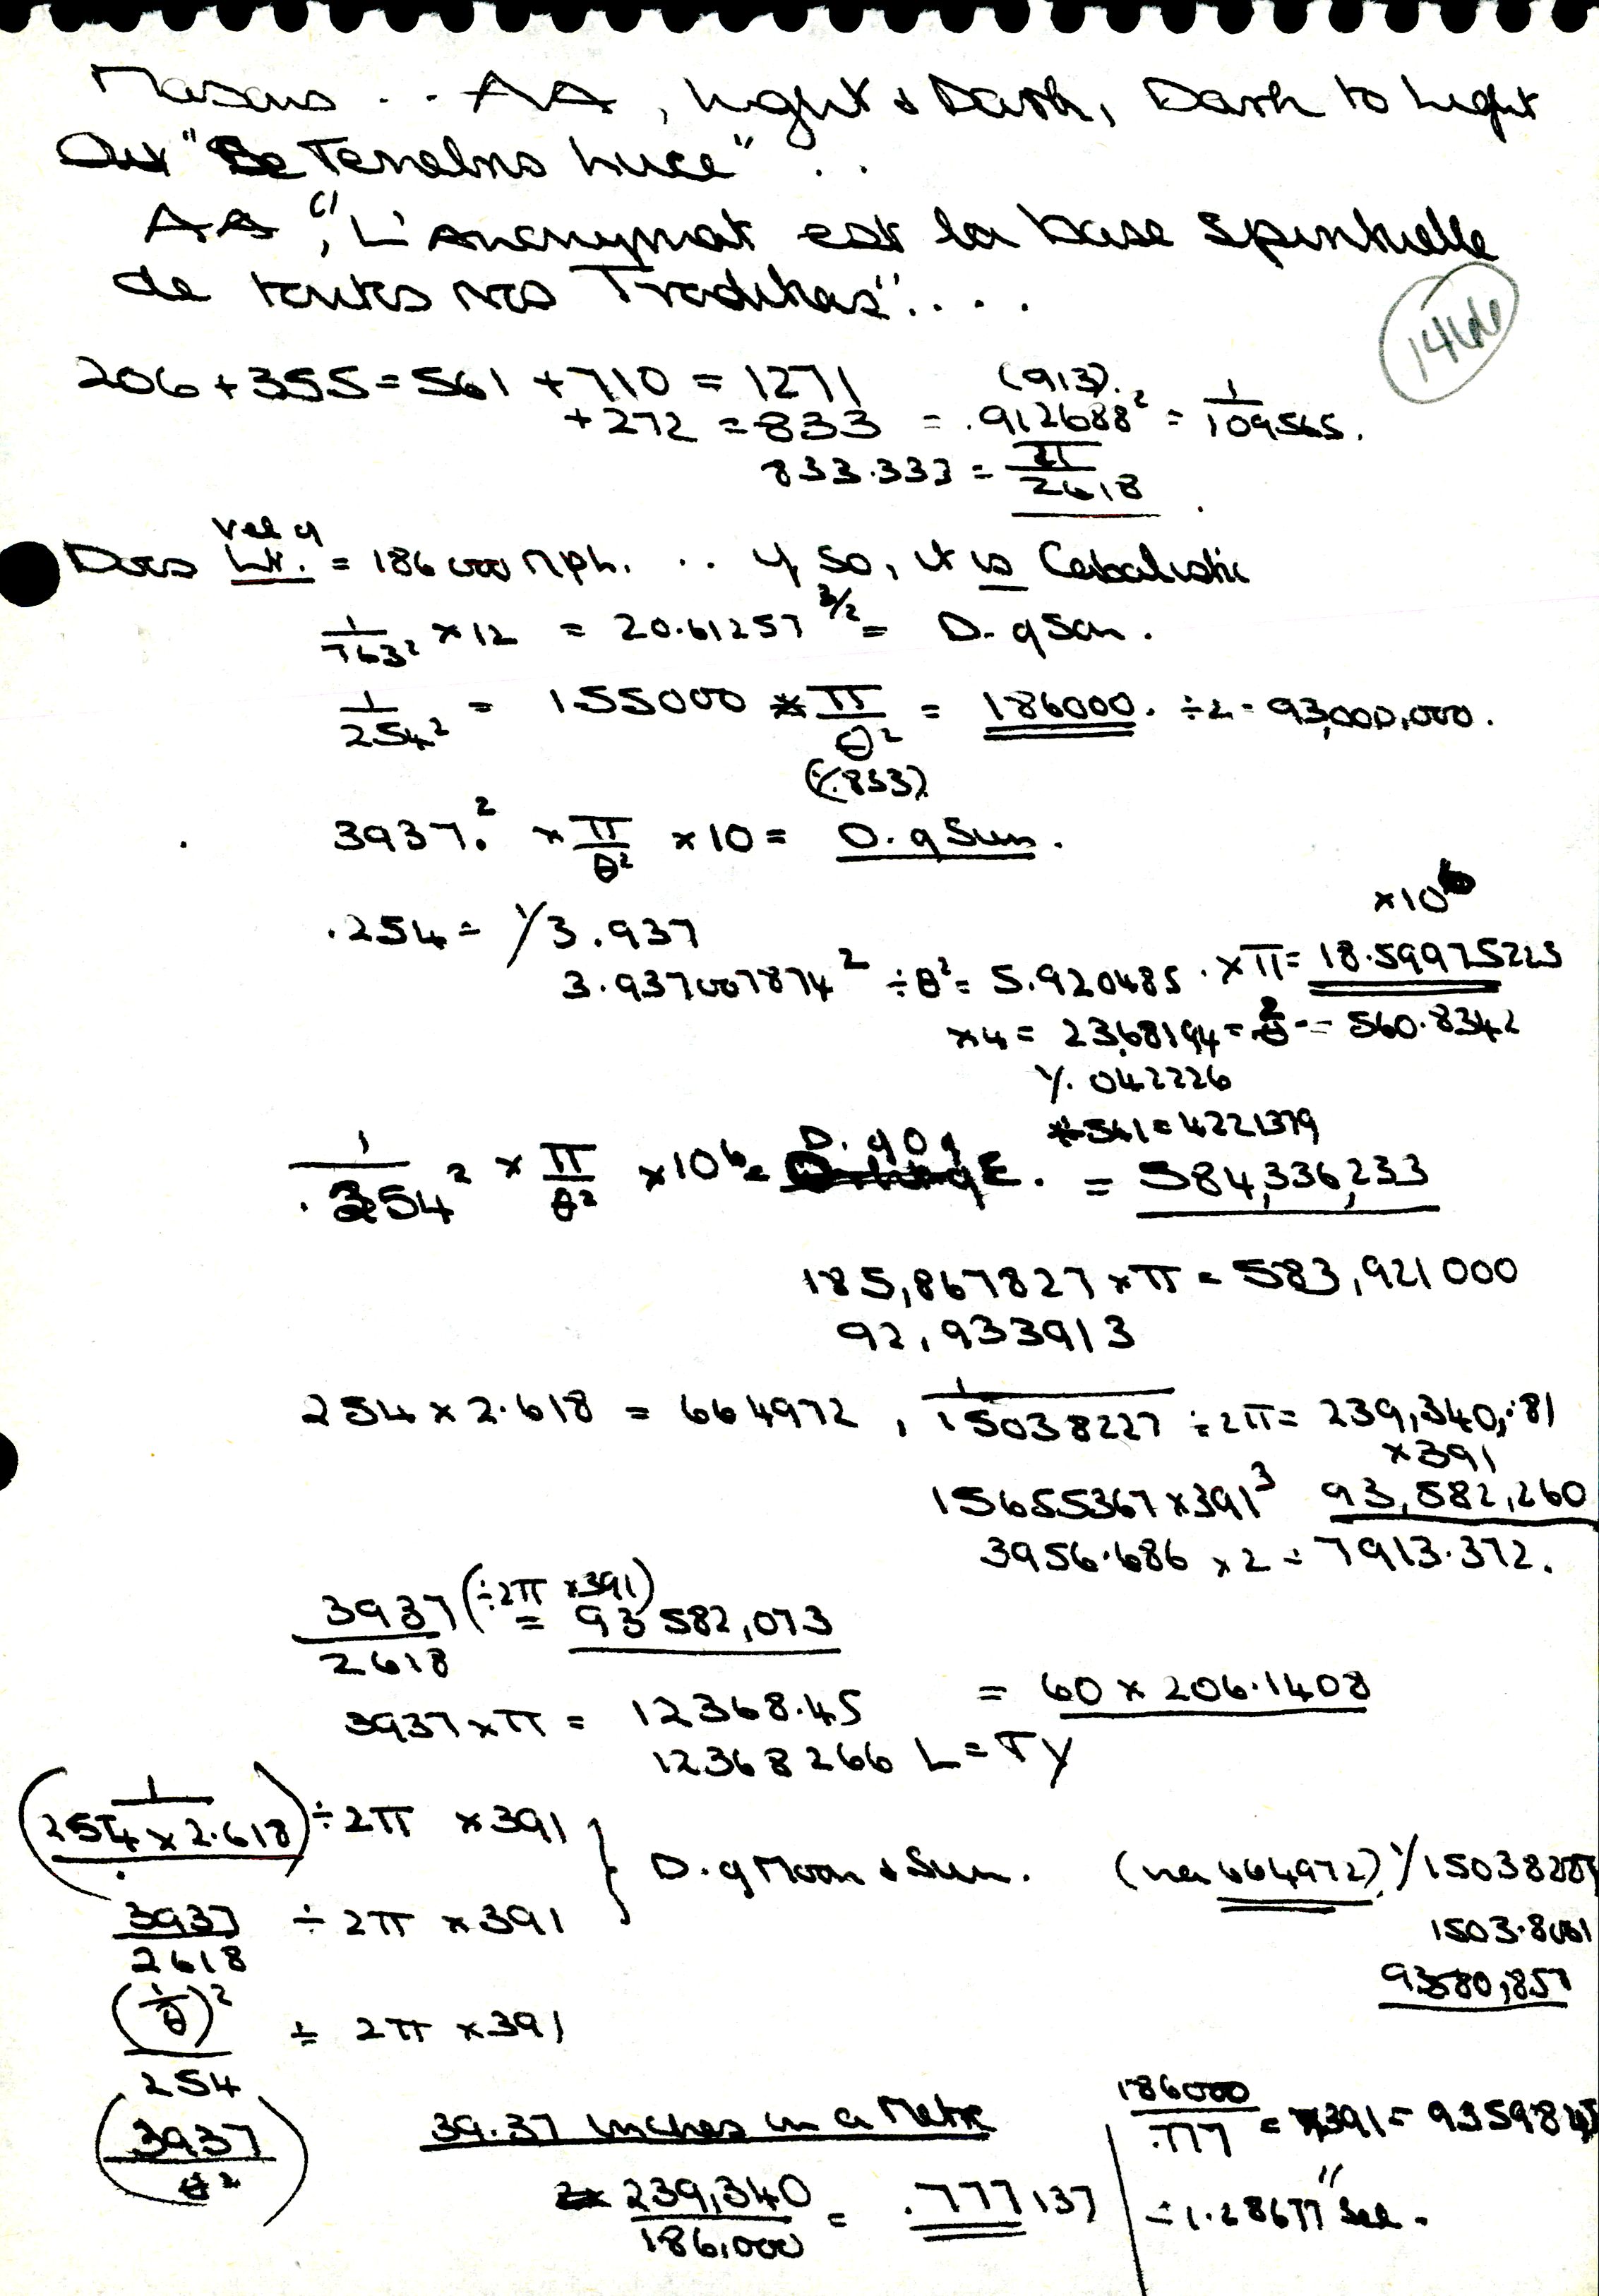 Masons .. AA, Light & Dark, Dark to Light
Out "De Tenebris Luce" ..
AA, "L'Anonymat est la base spirituelle
de toutes nos Traditions"....
206 + 355 = 561 + 710 = 1271
(913).
+ 272 = 833 = .912688² = 1/109565.
833.333 = 2π/2618
Does Vel of Lt. = 186000 Mph. .. If so, it is Cabalistic
1/763² × 12 = 20.61257 3/2 = D. of Sun.
1/254² = 155000 × π/θ² = 186000. ÷ 2 = 93,000,000.
3937.² × π/θ² × 10 = D. of Sun.
.254 = 1/3.937
×10⁶
3.937007874² ÷ θ² = 5.920485. × π = 18.59975223
×4 = 23.68194 = 560.8342
1/.042226
= 4221379
1/.254² × π/θ² × 10⁶ = D. of O of E. = 584,336,233
185,867827 × π = 583,921000
92,933913
254 × 2.618 = 664972, 1/15038227 ÷ 2π = 239,340,.81
×391
15655367 × 391³ 93,582,260
3956.686 × 2 = 7913.372.
3937/2618 (÷2π ×391) = 93 582,073
3937 × π = 12368.45 = 60 × 206.1408
12368266 L = TY
(1/254 × 2.618) ÷ 2π × 391
D. of Moon & Sun. (via 664972)
3937/2618 ÷ 2π × 391
93580,857
(1/θ)²/254 ÷ 2π × 391
(3937/θ²)
39.37 inches in a Metre
239,340/186,000 = .777137
186000/.777 = ×391 =
= 1.28677" Sec.